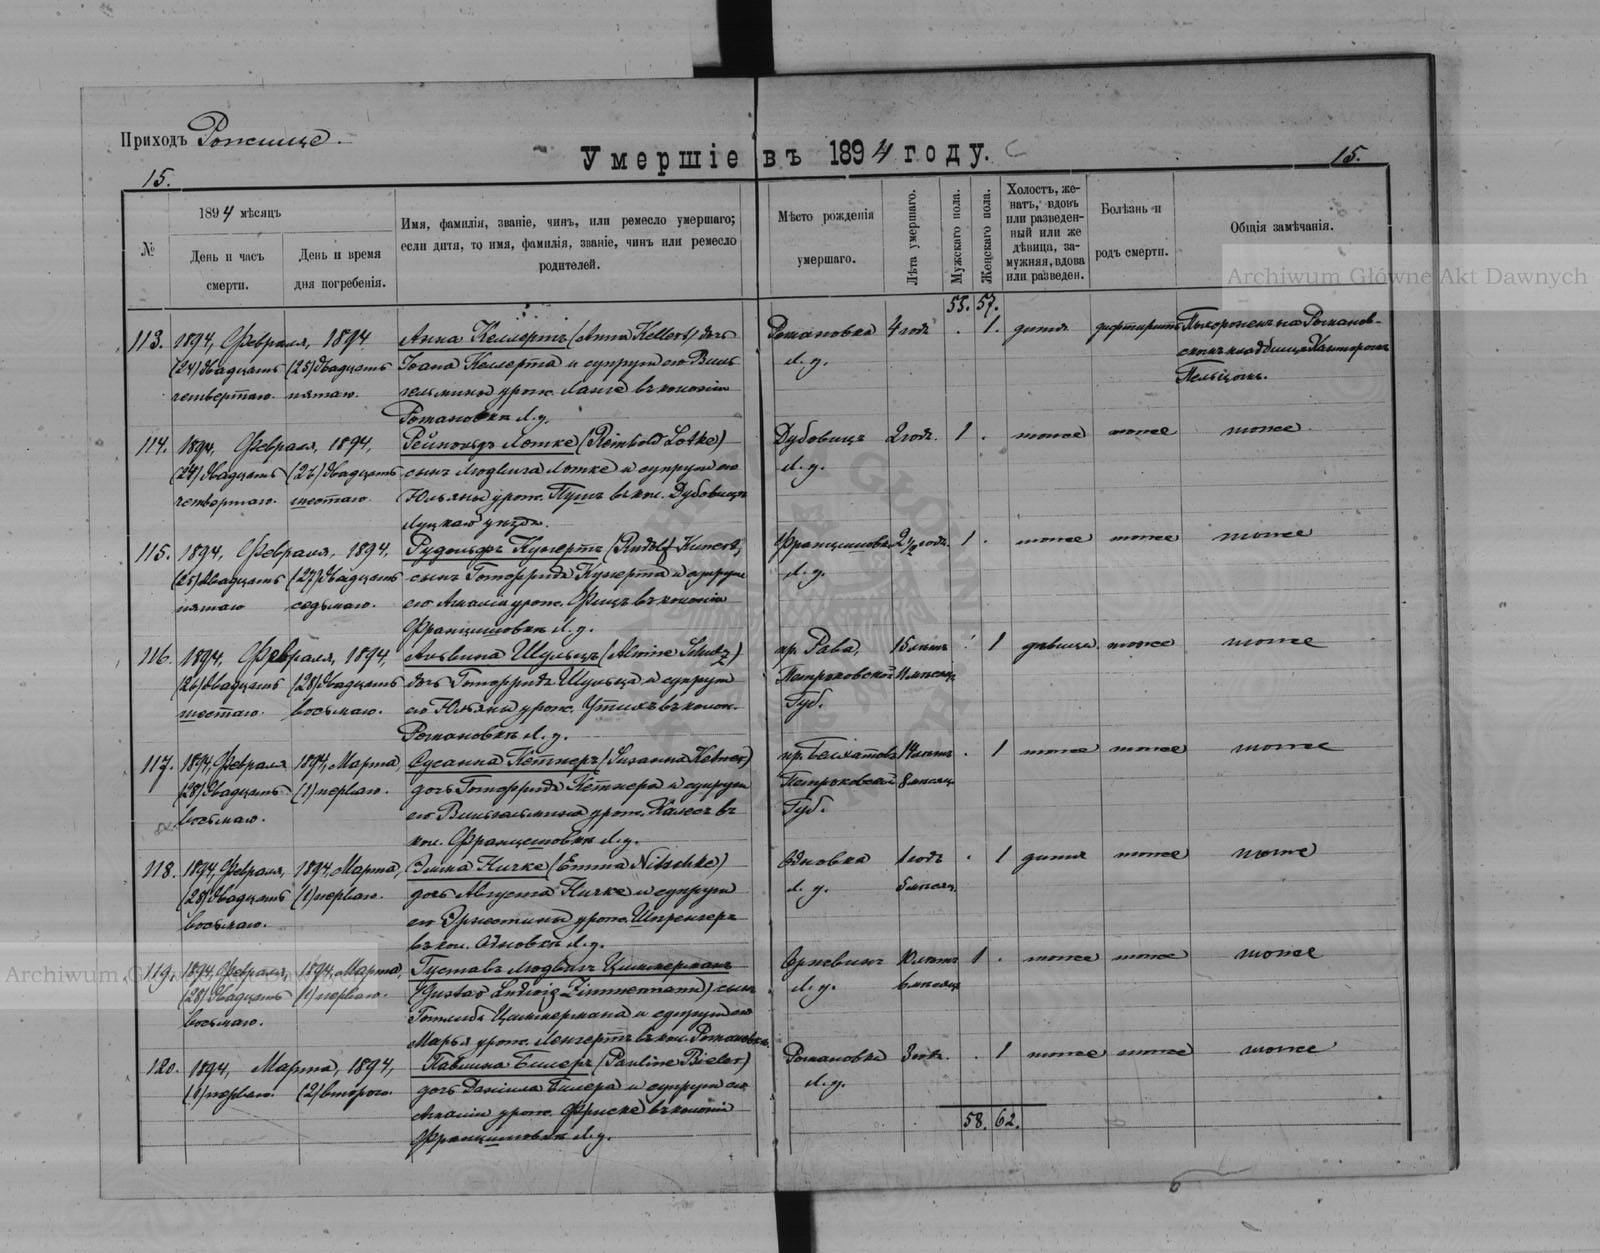 Приходъ Рожище.
Умершіе въ 1894 году.
15.
15.
№
1894 мѣсяцъ
День и часъ смерти.
День и время дня погребенія.
Имя, фамилія, званіе, чинъ, или ремесло умершаго;
если дитя, то имя, фамилія, званіе, чинъ или ремесло
родителей.
Мѣсто рожденія
умершаго.
Лѣта умершаго.
Мужскаго пола.
Женскаго пола.
Холостъ, же-
натъ, вдовъ
или разведен-
ный или же
дѣвица, за-
мужняя, вдова
или разведен.
Болѣзнь и
родъ смерти.
Общія замѣчанія.
Archiwum Główne Akt Dawnych
55. 57.
113. 1894, Февраля, 1894 Анна Келлертъ (Anna Kellert) дочь Романовка 4 года . 1. дитя дифтеритъ Похороненъ на Романов-
(24) двадцать (25) двадцать Іоана Келлерта и супруги его Виль Л. у. скомъ кладбище Канторомъ
четвертаго. пятаго. гельмины урож. Ланге въ колоніи
Романовка Л. у.
114. 1894, Февраля, 1894, Рейнольдъ Лотке (Reinhold Lotke) Дубовицъ 2 года. 1 . тоже тоже тоже
(24) двадцать (26) двадцать сынъ Людвига Лотке и супруги его Л. у.
четвертаго. шестаго. Юльяны урож. Пушъ въ кол. Дубовицъ
Луцкаго уѣзда.
115. 1894, Февраля, 1894, Рудольфъ Кунертъ (Rudolf Kunert) Францишовка 2 1/2 года. 1 . тоже тоже тоже
(25) двадцать (27) двадцать сынъ Готфрида Кунерта и супруги Л. у.
пятаго седьмаго. его Амалія урож. Фицъ въ колоніи
Францишовка Л. у.
116. 1894, Февраля, 1894, Альвина Шульцъ (Alwine Schulz) пр. Рава, 15 лѣтъ . 1 дѣвица тоже тоже
(26) двадцать (28) двадцать дочь Готфрида Шульца и супруги Петроковской 11 мѣсяц.
шестаго. восьмаго. его Юльяны урож. въ колон. Губ.
Романовка Л. у.
117. 1894, Февраля 1894, Марта, Сусанна Кетнеръ (Susanna Ketner) пр. Белхатовъ 14 лѣтъ . 1 тоже тоже тоже
(28) двадцать (1) перваго. дочь Готфрида Кетнера и супруги Петроковской 8 мѣсяц.
восьмаго. его Вильгельмина урож. въ Губ.
кол. Францишовка Л. у.
118. 1894, Февраля, 1894, Марта, Эмма Ничке (Emma Nitschke) 1 годъ . 1 дитя тоже тоже
(28) двадцать (1) перваго. дочь Августа Ничке и супруги Л. у. 5 мѣсяц.
восьмаго. его Эрнестины урож. Шпренгеръ
въ кол. Л. у.
Archiwum Główne Akt Dawnych
119. 1894, Февраля, 1894, Марта, Густавъ Людвигъ Циммерманъ 10 лѣтъ 1 . тоже тоже тоже
(28) двадцать (1) перваго. (Gustav Ludwig Zimmermann) сынъ Л. у. 6 мѣсяц.
восьмаго. Готлиба Циммермана и супруги его
Марья урож. въ кол. Романовка.
120. 1894, Марта, 1894, Павлина Билеръ (Pauline Bieler) Романовка 3 года. . 1 тоже тоже тоже
(1) перваго. (2) втораго. дочь Даніила Билера и супруги его Л. у.
Амаліи урож. Фриске въ колоніи
Францишовка Л. у.
58. 62.